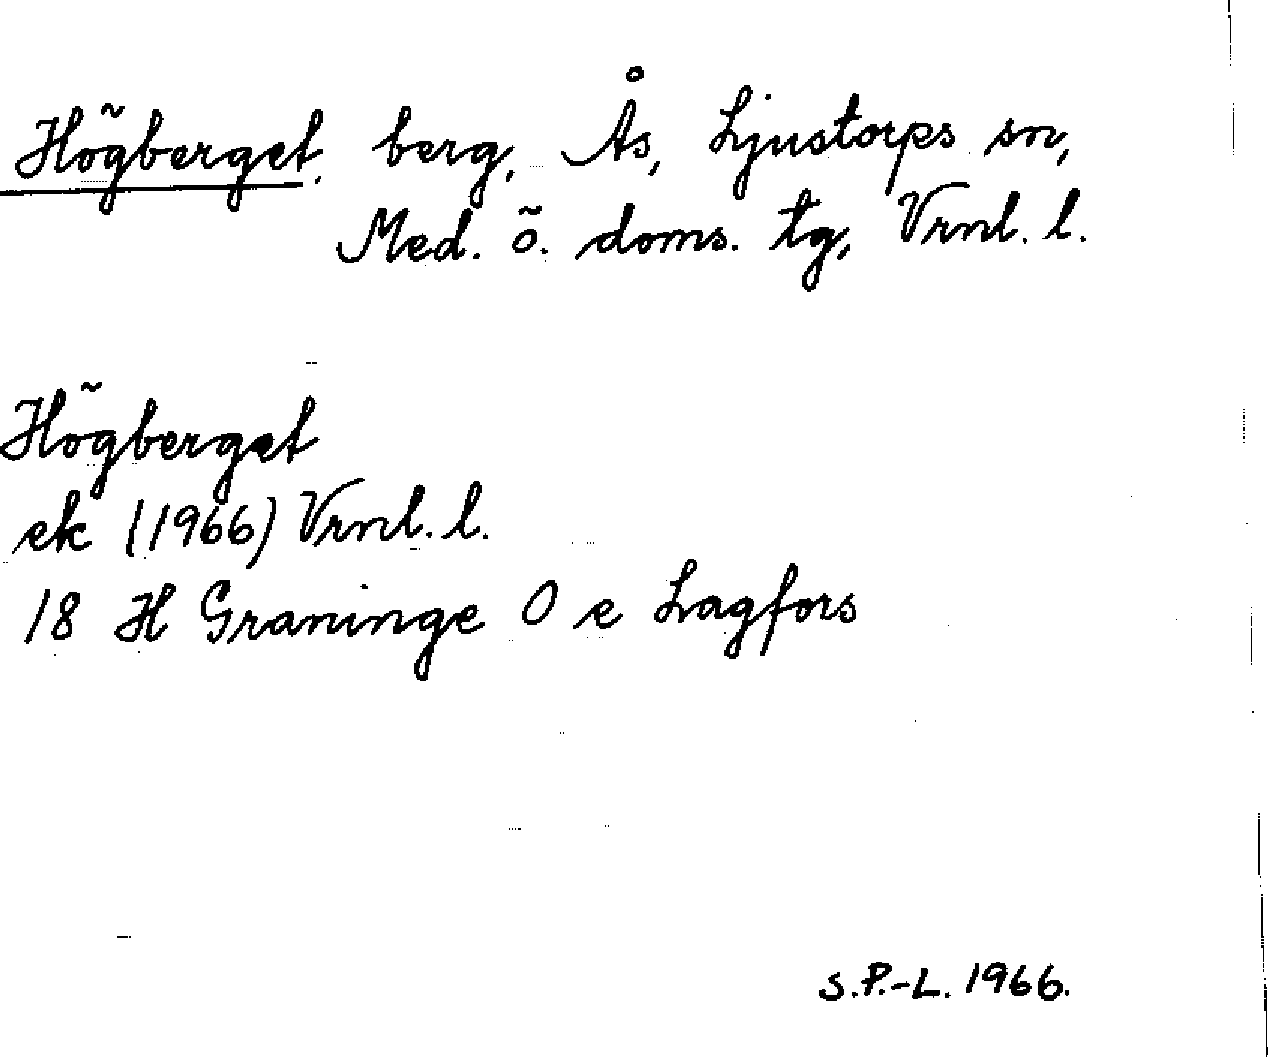 Högberget, berg, Ås, Ljustorps sn,
Med. ö. doms. tg, Vrnl. l.
Högberget
ek (1966) Vrnl. l.
18 H Graninge O e Lagfors
S.P.-L. 1966.